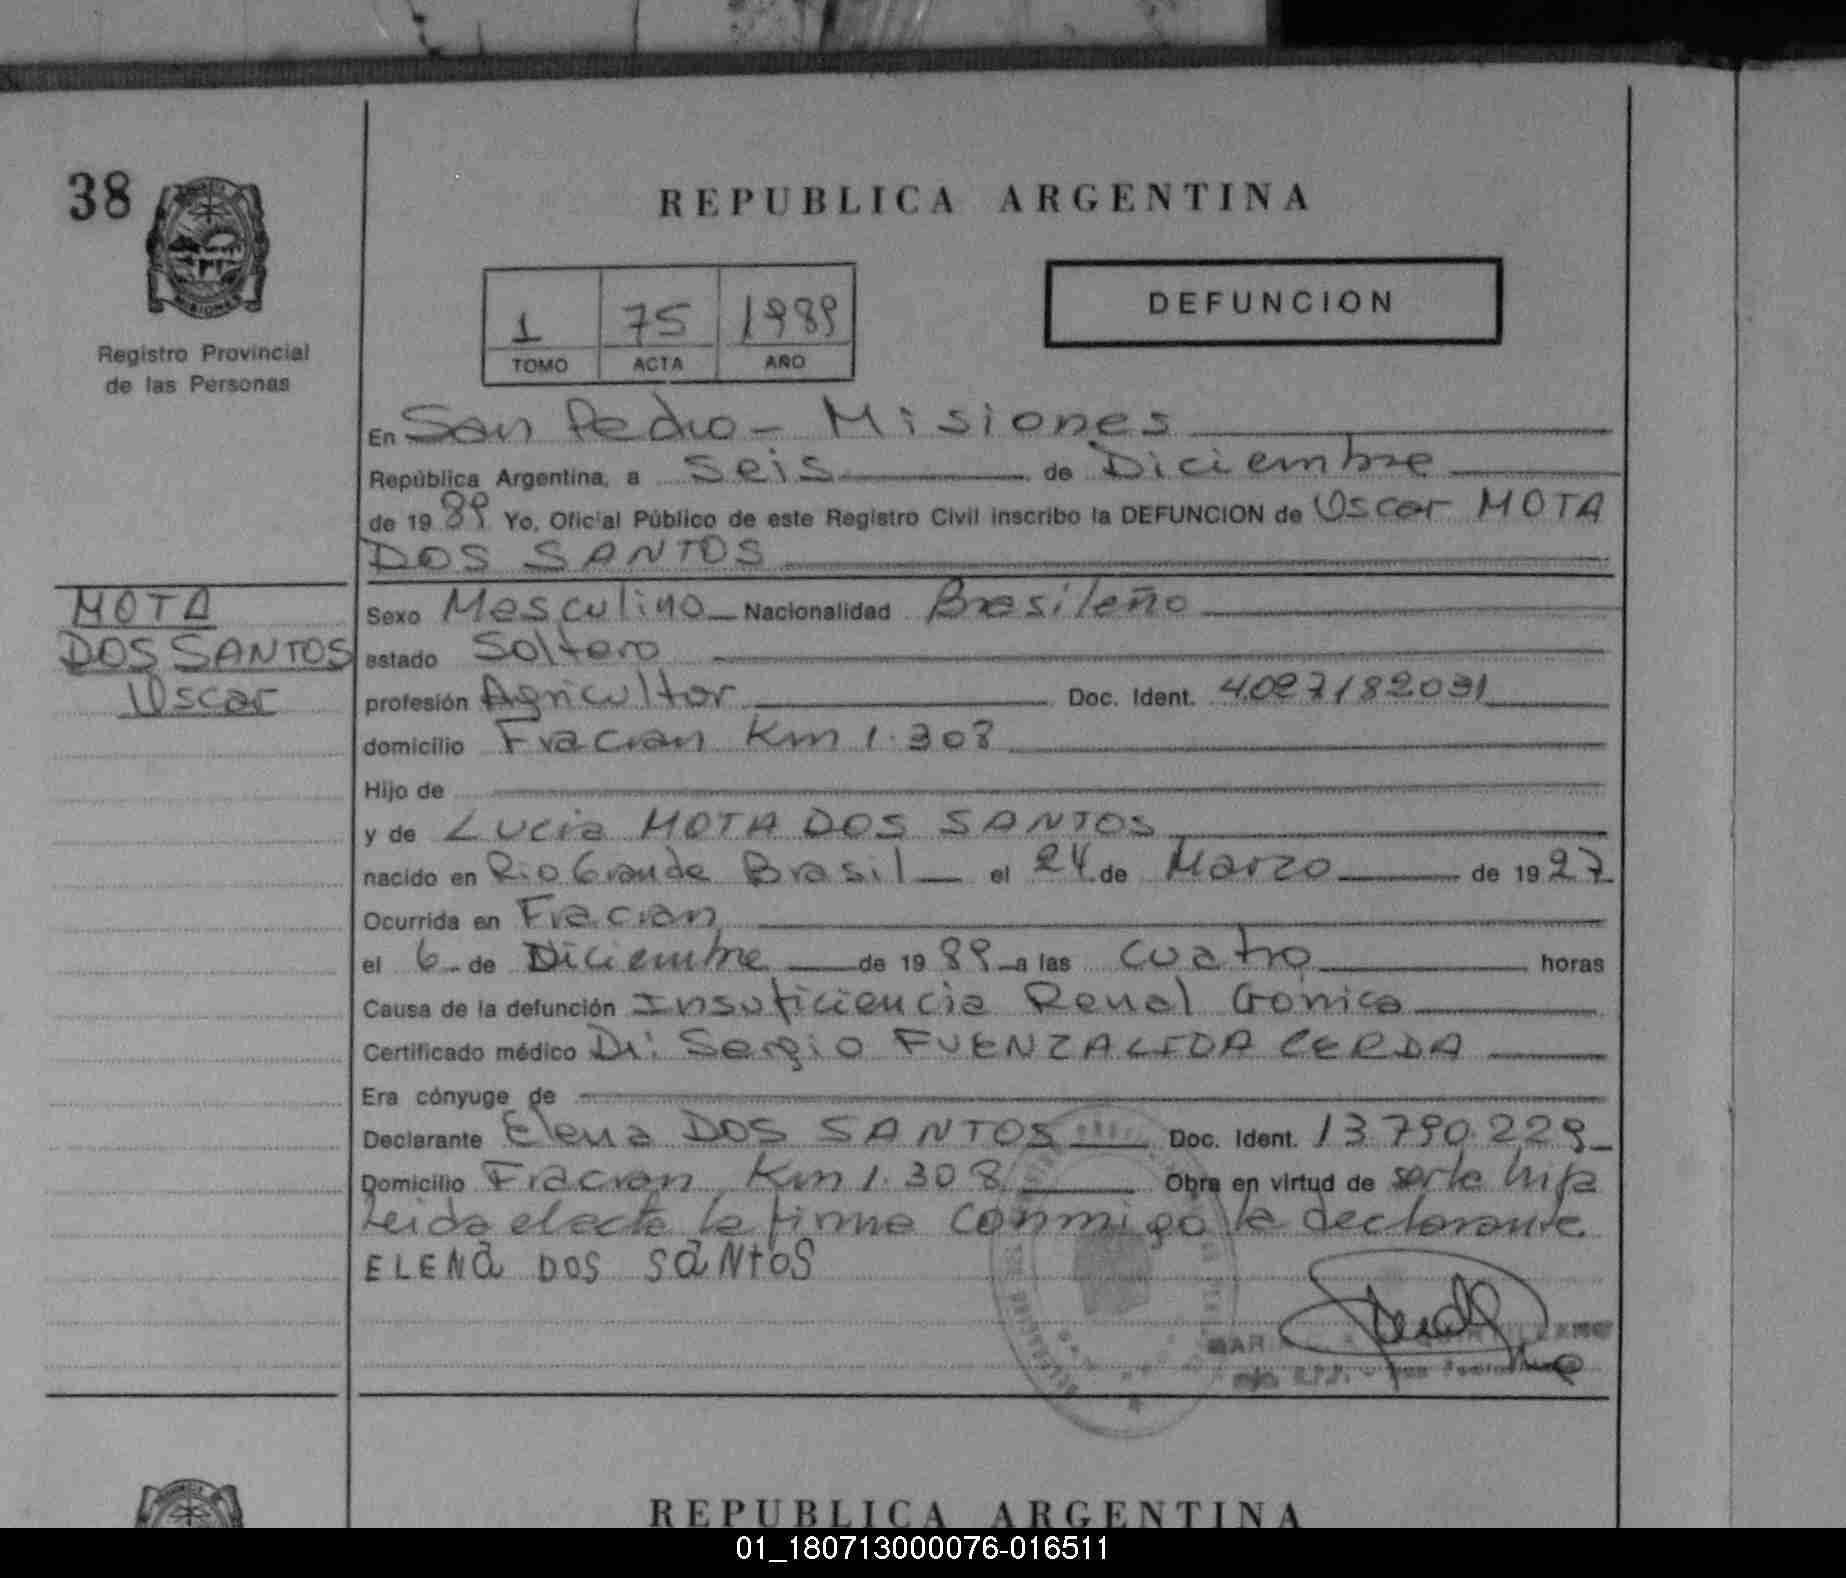 38
MISIONES
Registro Provincial
de las Personas
REPUBLICA ARGENTINA
1 75 1989
TOMO ACTA AÑO
DEFUNCION
En San Pedro - Misiones
República Argentina, a seis de Diciembre
de 1989 Yo, Oficial Público de este Registro Civil inscribo la DEFUNCION de Oscar MOTA
DOS SANTOS
MOTA
DOS SANTOS
Oscar
Sexo Masculino Nacionalidad Brasileño
estado Soltero
profesión Agricultor Doc. Ident. 4.027182031
domicilio Fracran Km 1.308
Hijo de
y de Lucia MOTA DOS SANTOS
nacido en Rio Grande Brasil el 24 de Marzo de 1927
Ocurrida en Fracran
el 6 de Diciembre de 1989 a las cuatro horas
Causa de la defunción Insuficiencia Renal Cronica
Certificado médico Dr: Sergio FUENZALIDA CERDA
Era cónyuge de
Declarante Elena DOS SANTOS Doc. Ident. 13.790.229
Domicilio Fracran Km 1.308 Obra en virtud de ser la hija
Leida el acta la firma conmigo la declarante
ELENa DOS SaNtOS
REPUBLICA ARGENTINA
01_180713000076-016511